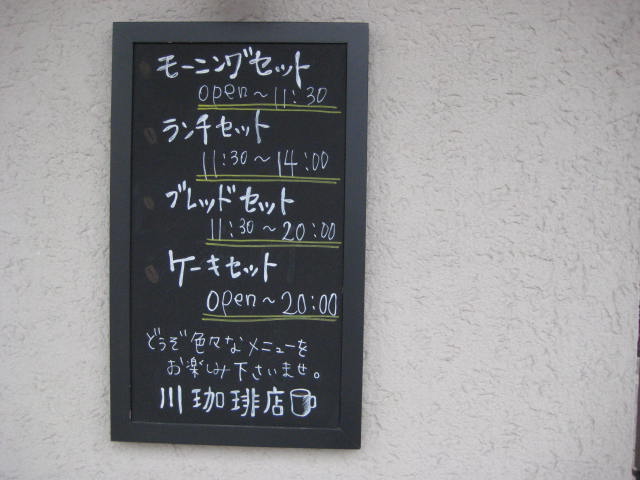 モーニングセット
open～11:30
ランチセット
11:30～14:00
ブレッドセット
11:30～20:00
ケーキセット
open～20:00
どうぞ色々なメニューを
お楽しみ下さいませ。
川珈琲店